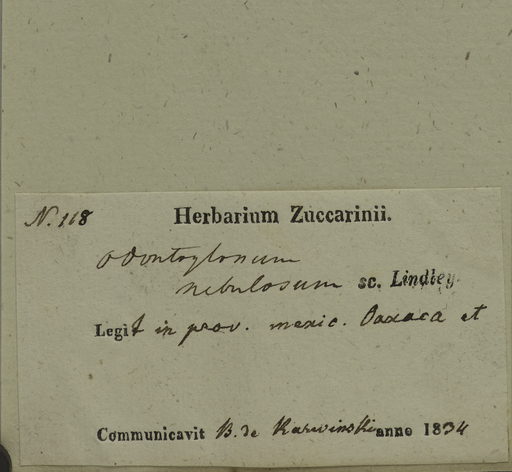 N. 118 Herbarium Zuccarinii.
Odontoglossum
nebulosum sc. Lindley.
Legit in prov. mexic. Oaxaca et
Communicavit B. de Karwinski anno 1834